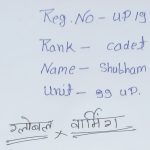 Reg. No - UP19
Rank - cadet
Name - Shubham
Unit - 99 UP.
ग्लोबल × वार्मिंग